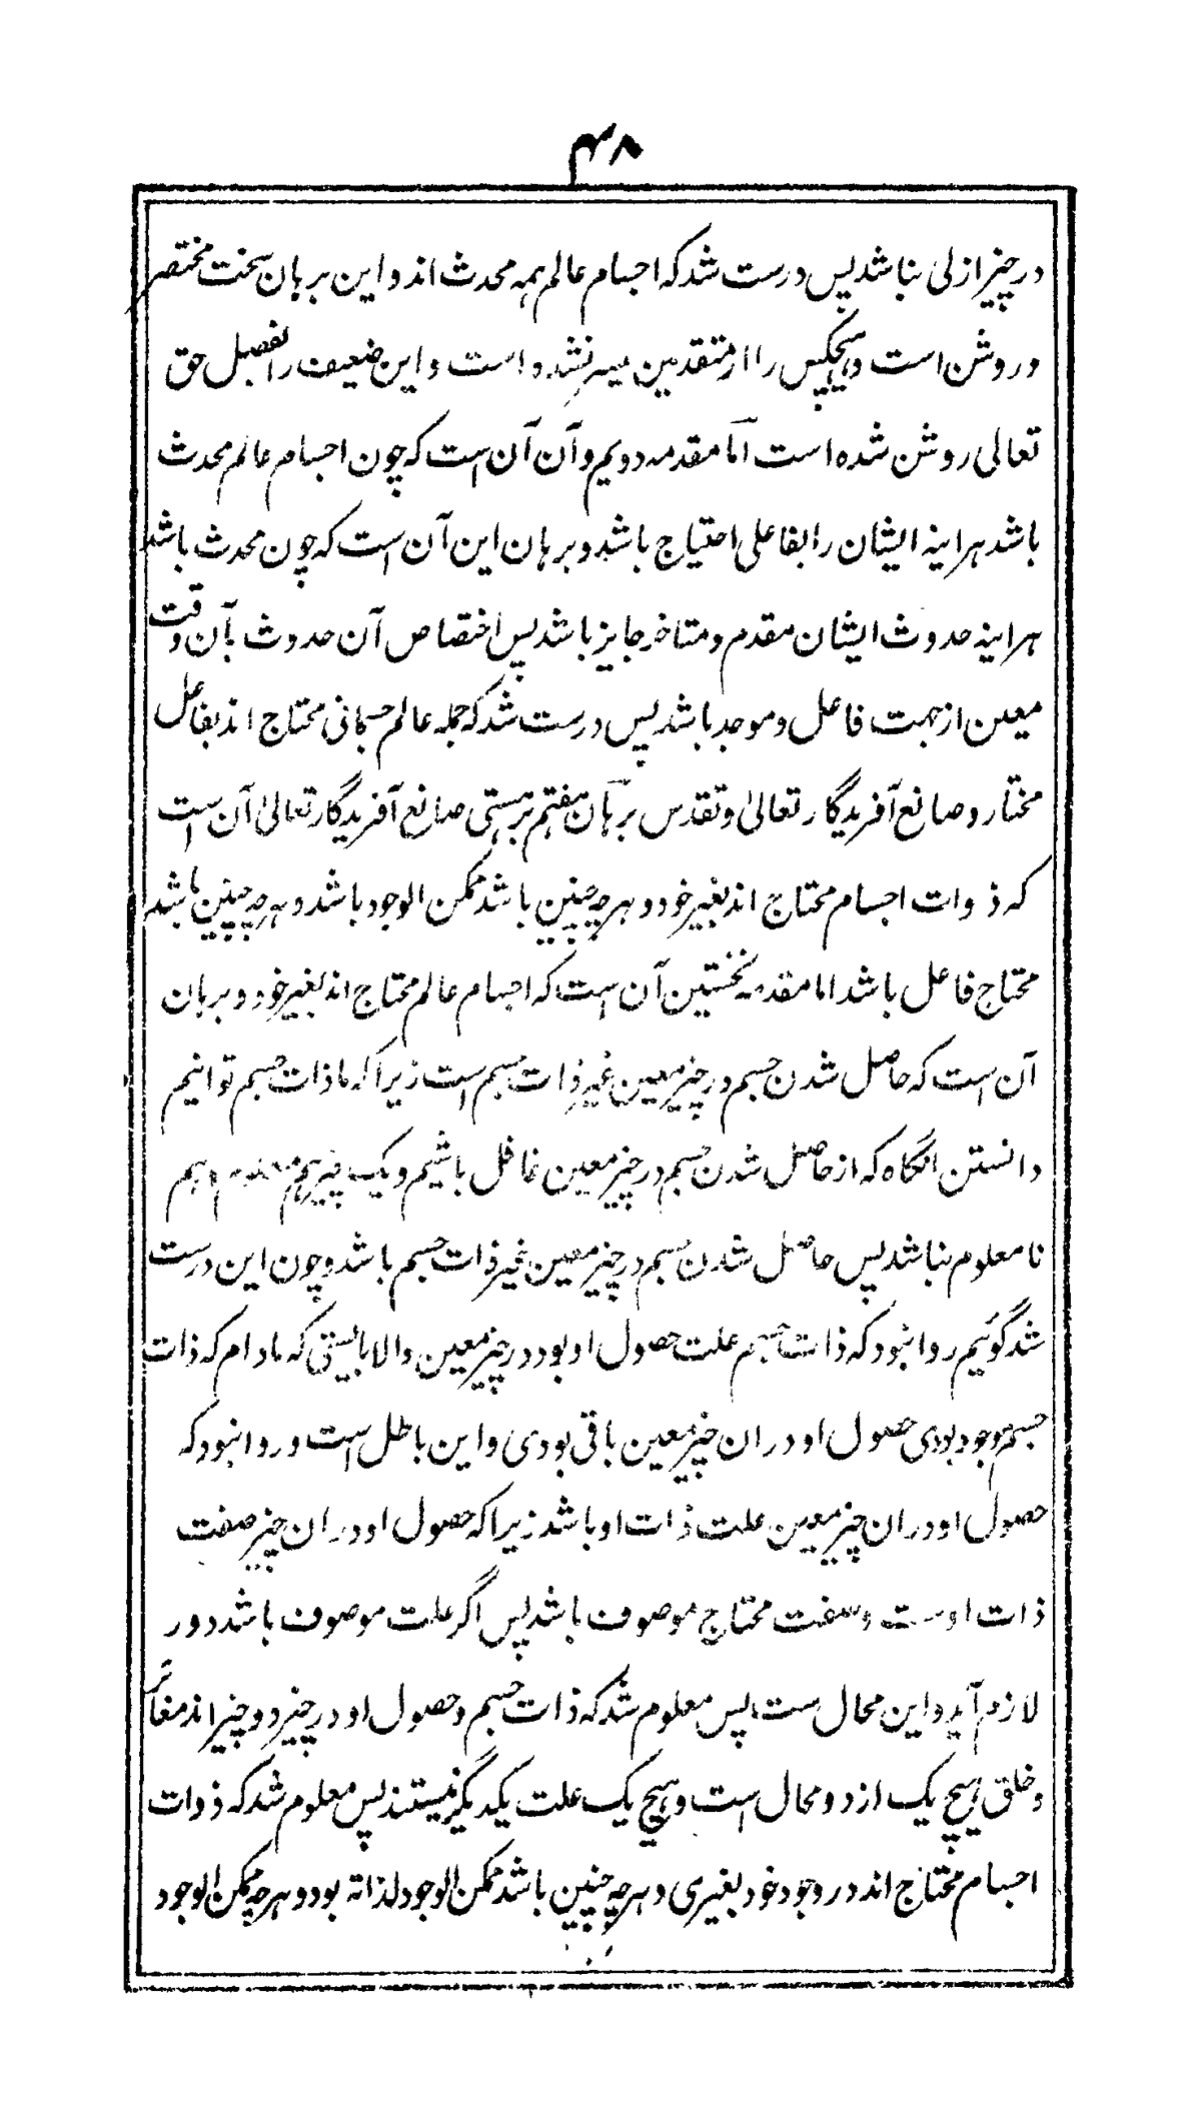 ۴۸
در چیز ازلی نباشد پس درست شد که اجسام عالم همه محدث اند و این برهان سخت مختصر
و روشن است و هیچکس را از متقدمین میسر نشده است و این ضعیف را بفضل حق
تعالی روشن شده است امّا مقدمه دویم و آن آن است که چون اجسام عالم محدث
باشد هراینه ایشان را بفاعلی احتیاج باشد و برهان این آن است که چون محدث باشد
هراینه حدوث ایشان مقدم و متاخر جایز باشد پس اختصاص آن حدوث بآن وقت
معین از جهت فاعل و موجد باشد پس درست شد که جمله عالم جسمانی محتاج اند بفاعل
مختار و صانع آفریدگار تعالیٰ و تقدس برهان هفتم بر هستی صانع آفریدگار تعالیٰ آن است
که ذوات اجسام محتاج اند بغیر خود و هرچه چنین باشد ممکن الوجود باشد و هرچه چنین باشد
محتاج فاعل باشد اما مقدمه نخستین آن است که اجسام عالم محتاج اند بغیر خود و برهان
آن است که حاصل شدن جسم در چیز معین غیر ذات جسم است زیرا که ما ذات جسم توانیم
دانستن انگاه که از حاصل شدن جسم در چیز معین غافل باشیم و یک چیز هم معلوم و هم
نامعلوم نباشد پس حاصل شدن جسم در چیز معین غیر ذات جسم باشد و چون این درست
شد گوئیم روا نبود که ذات جسم علت حصول او بود در چیز معین والا بایستی که مادام که ذات
جسم موجود بودی حصول او دران چیز معین باقی بودی و این باطل است و روا نبود که
حصول او دران چیز معین علت ذات او باشد زیرا که حصول او دران چیز صفت
ذات اوست و صفت محتاج موصوف باشد پس اگر علت موصوف باشد دور
لازم آید و این محال ست پس معلوم شد که ذات جسم و حصول او در چیز دو چیز اند مغائر
و خلق هیچ یک از دو محال است و هیچ یک علت یکدیگر نیستند پس معلوم شد که ذوات
اجسام محتاج اند در وجود خود بغیری و هرچه چنین باشد ممکن الوجود لذاته بود و هرچه ممکن الوجود